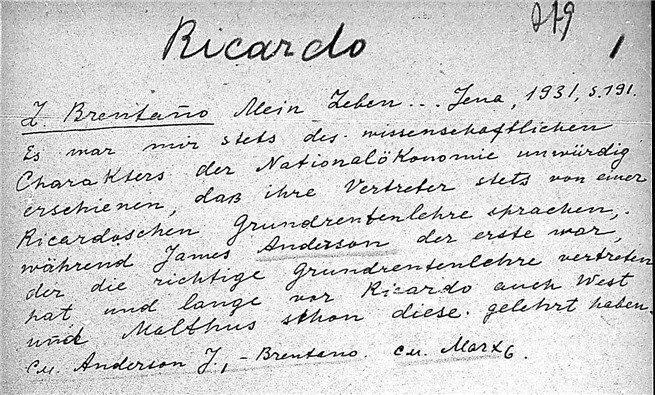 279
Ricardo
1
L. Brentano Mein Leben... Jena, 1931, S. 191.
Es war mir stets des wissenschaftlichen
Charakters der Nationalökonomie unwürdig
erschienen, daß ihre Vertreter stets von einer
Ricardoschen Grundrentenlehre sprachen,
während James Anderson der erste war,
der die richtige Grundrentenlehre vertreten
hat und lange vor Ricardo auch West
und Malthus schon diese gelehrt haben.
см. Anderson J., - Brentano. см. Marx